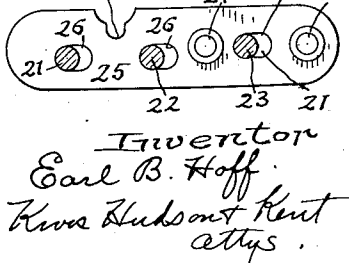 21
26 26
21 25
22 23 21
Inventor
Earl B. Hoff.
Kwis Hudson & Kent
attys.